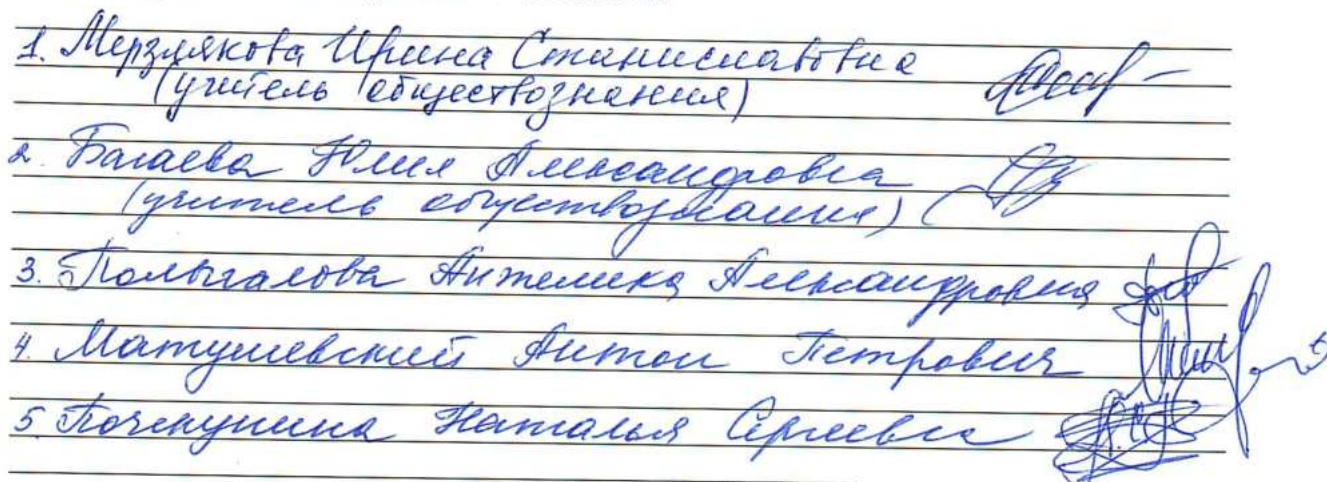 1. Мерзлякова Ирина Станиславовна
(учитель обществознания)
2. Багаева Юлия Александровна
(учитель обществознания)
3. Полыгалова Анжелика Александровна
4. Матушевский Антон Петрович
5. Почекунина Наталья Сергеевна